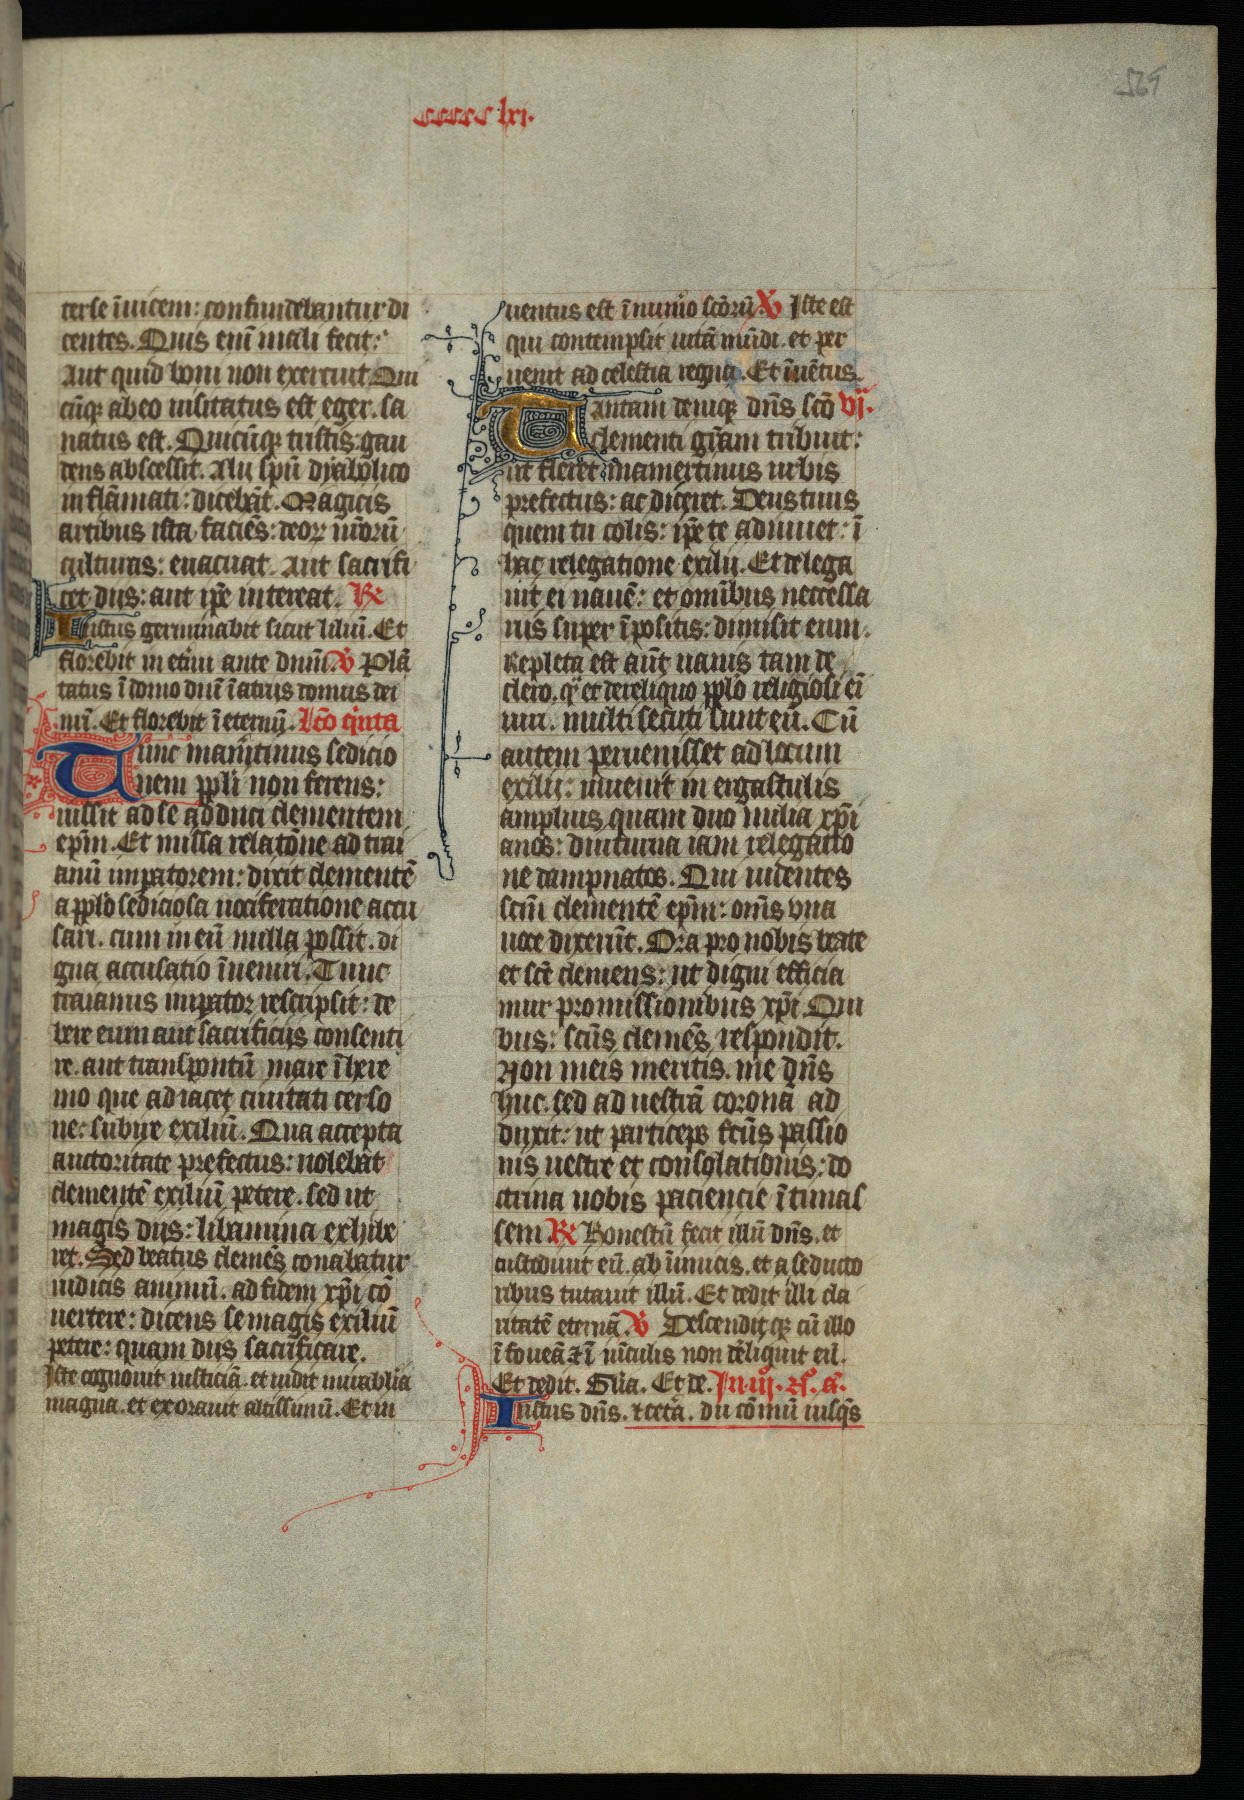 ccccc lxi.
565
terse īuicem: confundebantur di
centes. Quis eni mali fecit:
Aut quid boni non exercuit Qui
cūq; ab eo uisitatus est eger. sa
natus est. Quicūq; tristis: gau
dens abscessit. Alij spū dyabolico
inflāmati: dicebāt. Magicis
artibus ista faciēs: deorꝝ nr̄orū
culturas: euacuat. Aut sacrifi
cet dijs: aut ip̄e intereat. R
Iustus germinabit sicut liliū. Et
florebit in et'nū ante dnm̄. V Plā
tatus ī domo dni ī atrijs domus dei
nr̄i. Et florebit ī eternū. Lc̄o q'nta
Tunc mam̄tinus sedicio
nem ppl̄i non ferens:
iussit ad se adduci clementem
ep̄m. Et missa relatōne ad trai
anū impatorem: dixit clementē
a pplo sediciosa uociferatione accu
sari. cum in eū nulla possit. di
gna accusatio īueniri. Tunc
traianus impator rescripsit: de
bere eum aut sacrificijs consenti
re. aut transpontū mare ī here
mo que adiacet ciuitati cerso
ne: subire exiliū. Qua accepta
auctoritate prefectus: nolebat
clementē exiliū petere. sed ut
magis dijs: libamina exhibe
ret. Sed beatus clemēs conabatur
iudicis animū. ad fidem xp̄i cō
uertere: dicens se magis exiliū
petere: quam dijs sacrificare.
Iste cognouit iusticiā. et uidit mirabilia
magna. et exorauit altissimū. Et in
uentus est ī num'o scōrū. V Iste est
qui contempsit uitā mūdi. et per
uenit ad celestia regna. Et īuētus.
Tantam deniq; dn̄s scō vj.
clementi gr̄am tribuit:
ut fleret mamertinus urbis
prefectus: ac diceret. Deus tuus
quem tu colis: ip̄e te adiuuet: ī
hac relegatione exilij. Et delega
uit ei nauē: et omībus neccessa
rijs super īpositis: dimisit eum.
Repleta est aūt nauis tam de
clero. q' et de reliquo pplo religiosi ei
uiri. multi secuti sunt eū. Cū
autem peruenisset ad locum
exilij: inuenit in ergastulis
amplius quam duo milia xp̄i
anos: diuturna iam relegatio
ne dampnatos. Qui uidentes
scm̄ clementē ep̄m: om̄s vna
uoce dixerūt. Ora pro nobis beate
et scē clemens: ut digni efficia
mur promissionibus xp̄i. Qui
bus: scūs clemēs respondit.
Non meis meritis. me dn̄s
huc. sed ad uestrā coronā ad
duxit: ut particeps fcūs passio
nis uestre et consolationis: do
ctrina uobis paciencie ītimas
sem R Honestū fecit illū dn̄s. et
custodiuit eū. ab īimicis. et a seducto
ribus tutauit illū. Et dedit illi cla
ritatē eternā. V Descenditq; cū illo
ī foueā et ī uīculis non dēliquit eū.
Et dedit. Gl̄ia. Et de. In iij. n°. a.
Iustus dn̄s. et cetā. du cōmū iusq̄s